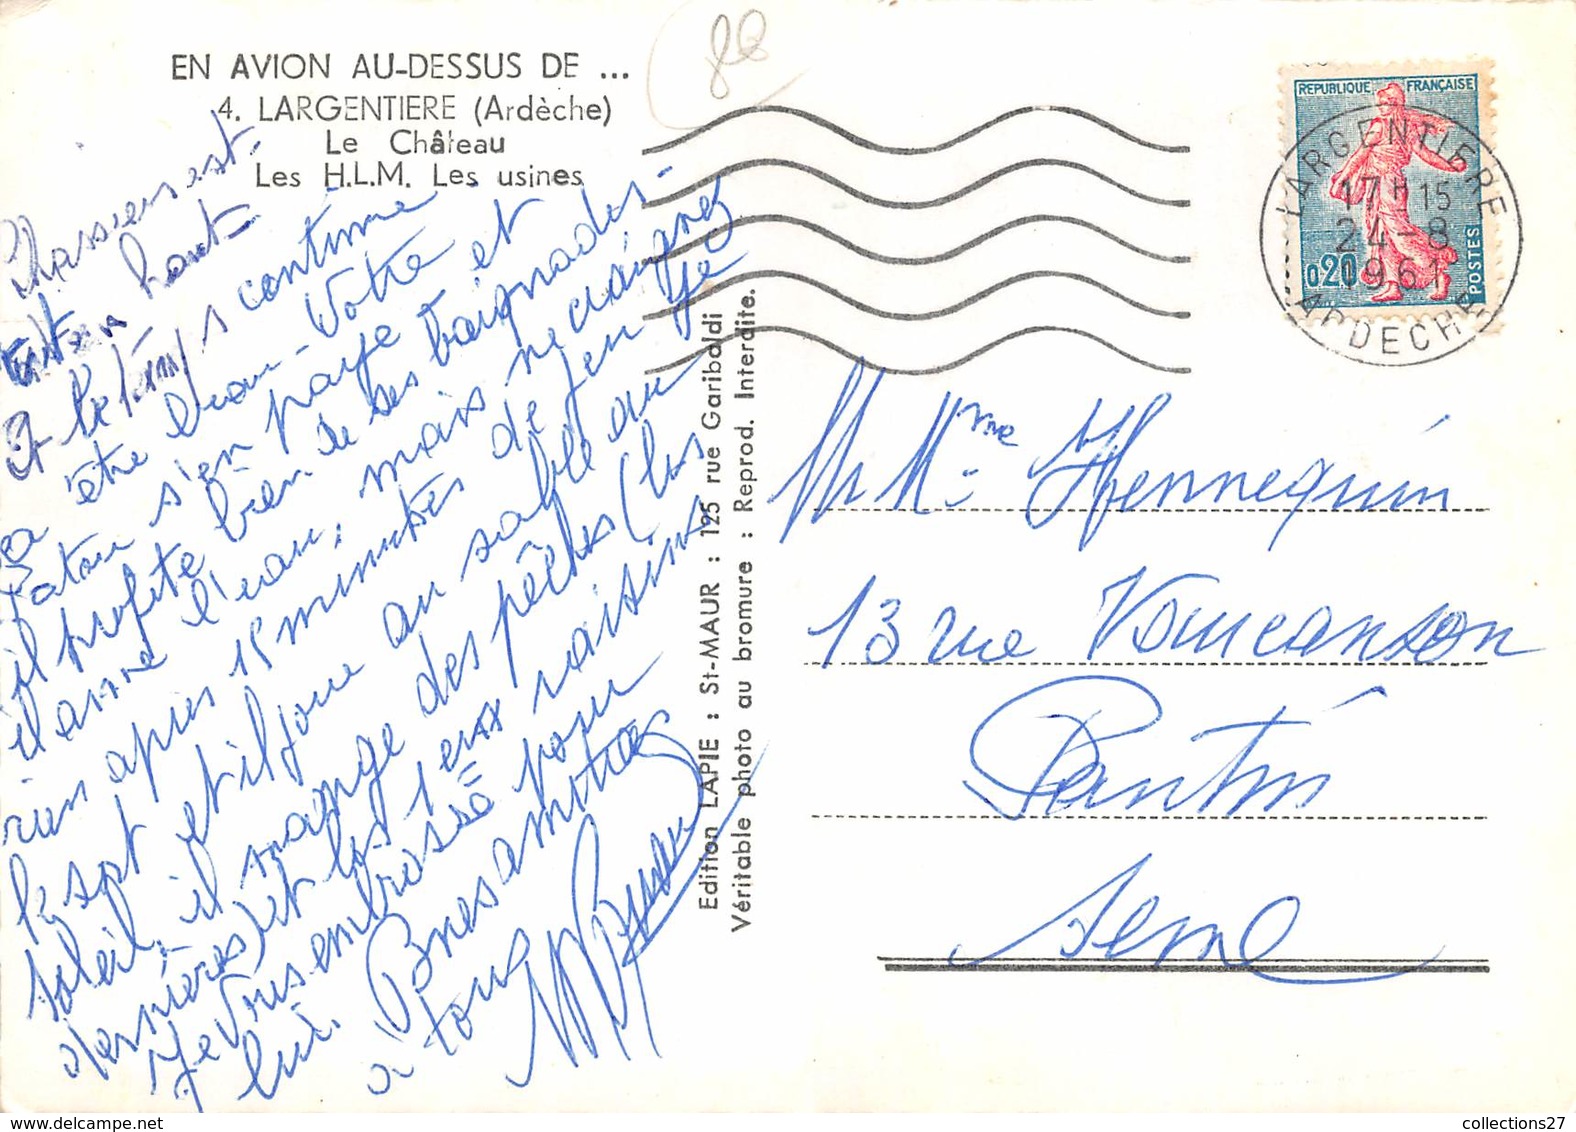 EN AVION AU-DESSUS DE ...
4. LARGENTIERE (Ardèche)
Le Château
Les H.L.M. Les usines
Chassiers est
en haut
Et le temps continue
à être beau. Votre
s'en paye et
il profite bien de ses baignades.
l'eau, mais ne craignez
rien après 15 minutes de jeu je
le sort et il joue au sable au
soleil, il mange des pêches (les
dernières) et les 1ers raisins
Je vous embrasse pour
lui. Bonnes amitiés
à tous
Edition LAPIE : St-MAUR : 125 rue Garibaldi
Véritable photo au bromure : Reprod. Interdite.
88
REPUBLIQUE FRANÇAISE
0,20
POSTES
LARGENTIERE
17 H 15
24-8
1961
ARDECHE
M Mme Hennequin
13 rue Vaucanson
Pantin
Seine
collections27